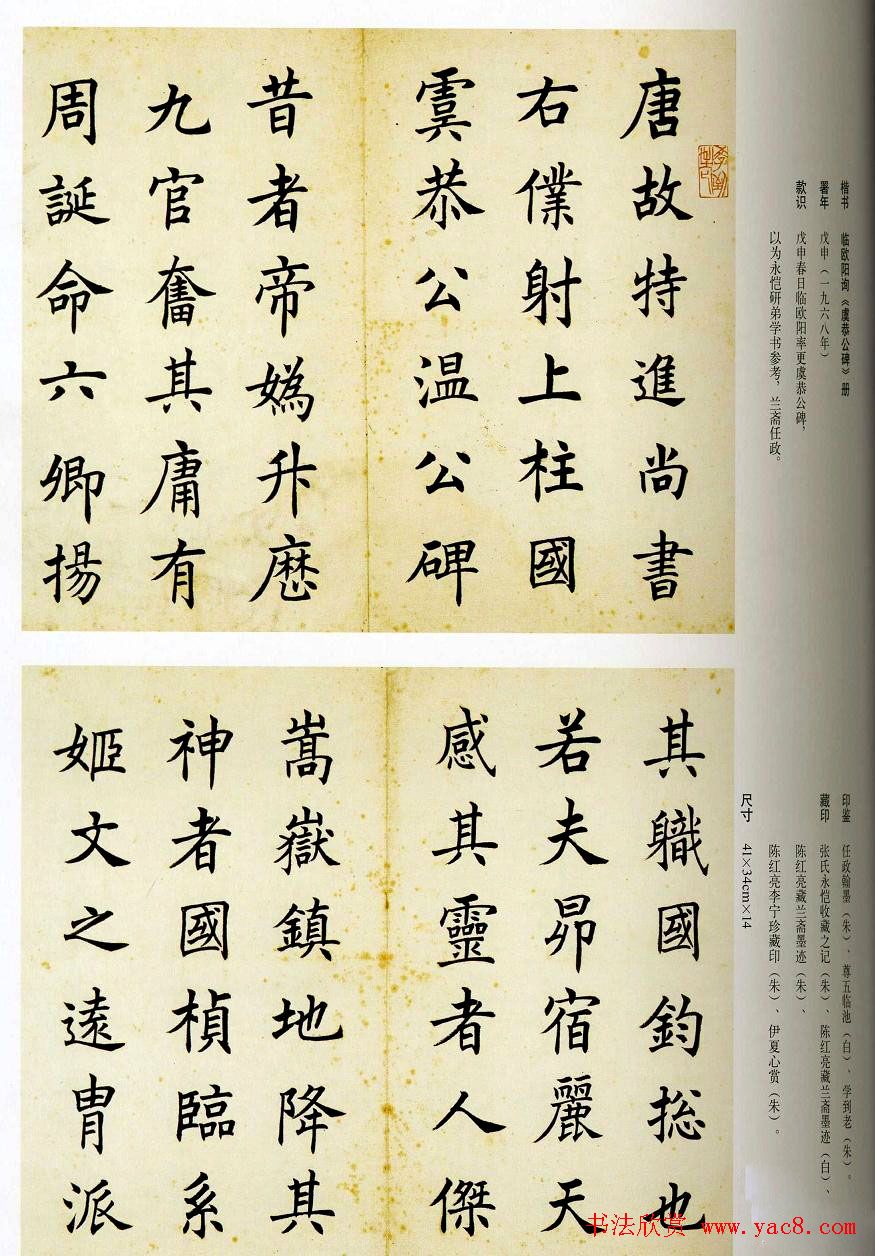 楷书 临欧阳询《虞恭公碑》册
署年 戊申（一九六八年）
款识 戊申春日临欧阳率更虞恭公碑，
以为永恺研弟学书参考，兰斋任政。
唐故特進尚書
右僕射上柱國
虞恭公温公碑
昔者帝媯升歷
九官奮其庸有
周誕命六卿揚
印鉴 任政翰墨（朱）、尊五临池（白）、学到老（朱）。
藏印 张氏永恺收藏之记（朱）、陈红亮藏兰斋墨迹（白）、
陈红亮藏兰斋墨迹（朱）、
陈红亮李宁珍藏印（朱）、伊夏心赏（朱）。
尺寸 41×34cm×14
其職國鈞揔也
若夫昴宿麗天
感其靈者人傑
嵩嶽鎮地降其
神者國楨臨系
姬文之遠胄派
书法欣赏 www.yac8.com